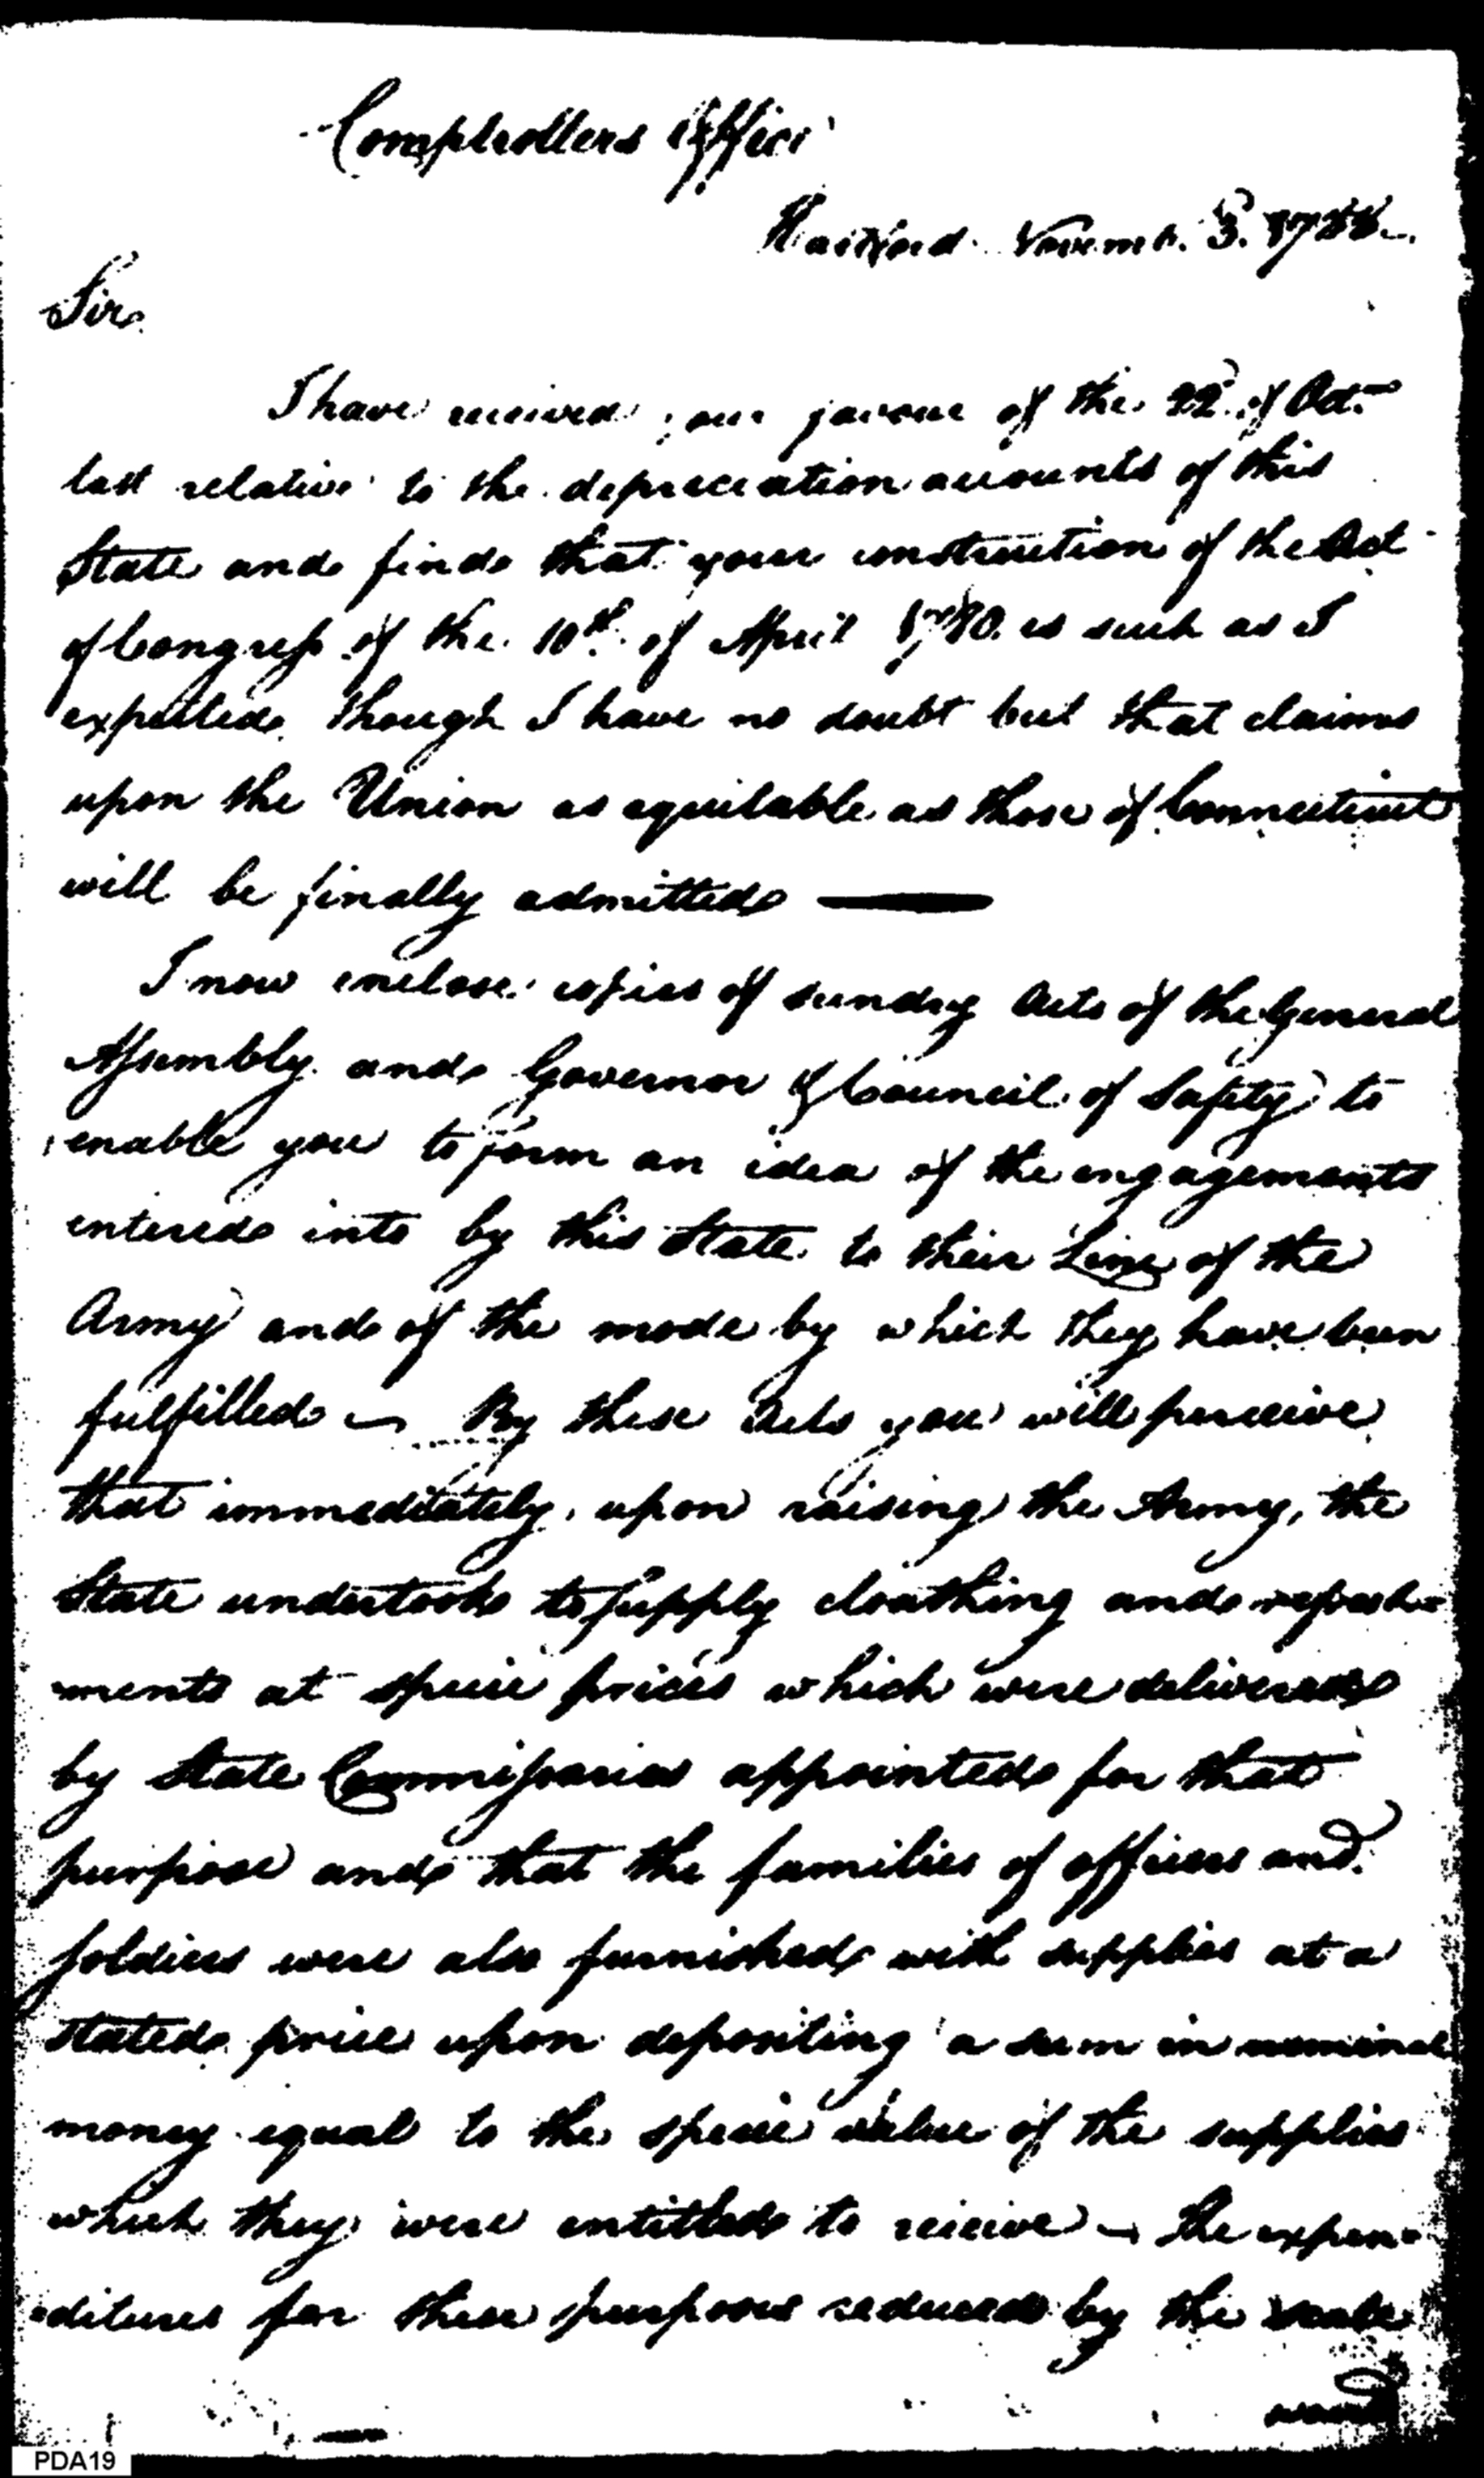 Comptrollers Office
Hartford Novemb. 3. 1788.
Sir
I have received your favour of the 22d. of Oct.
last relative to the depreciation accounts of this
State and find that your construction of the Act
of Congress of the 10th. of April 1780 is such as I
expected, though I have no doubt but that claims
upon the Union as equitable as those of Connecticut
will be finally admitted —
I now enclose copies of sundry Acts of the General
Assembly and Governor & Council of Safety to
enable you to form an idea of the engagements
entered into by this State to their Line of the
Army and of the mode by which they have been
fulfilled — By these Acts you will perceive
that immediately, upon raising the Army, the
State undertook to supply cloathing and refresh-
ments at specie prices which were delivered
by State Commissaries appointed for that
purpose and that the families of officers and
soldiers were also furnished with supplies at a
stated price upon depositing a sum in nominal
money equal to the specie value of the supplies
which they were entitled to receive — The expen-
ditures for these purposes reduced by the scale
PDA19